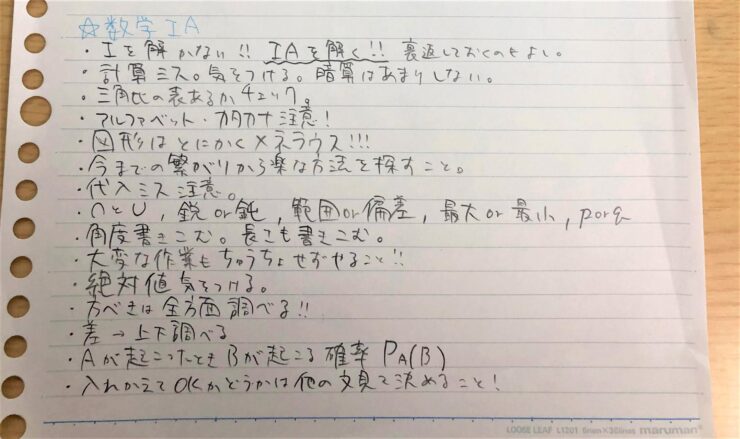 ☆数学ⅠA
・Ⅰを解かない!! ⅠAを解く!! 裏返しておくのもよし。
・計算ミス。気をつける。暗算はあまりしない。
・三角比の表あるかチェック。
・アルファベット・カタカナ注意!
・図形はとにかくメネラウス!!!
・今までの繋がりから楽な方法を探すこと。
・代入ミス注意。
・∩と∪, 鋭or鈍, 範囲or偏差, 最大or最小, porq
・角度書きこむ。長さも書きこむ。
・大変な作業もちゅうちょせずやること!!
・絶対値気をつける。
・方べきは全方面調べる!!
・差→上下調べる
・Aが起こったときBが起こる確率 PA(B)
・入れかえてOKかどうかは他の文見て決めること!
LOOSE LEAF L1201 6mm×36lines maruman